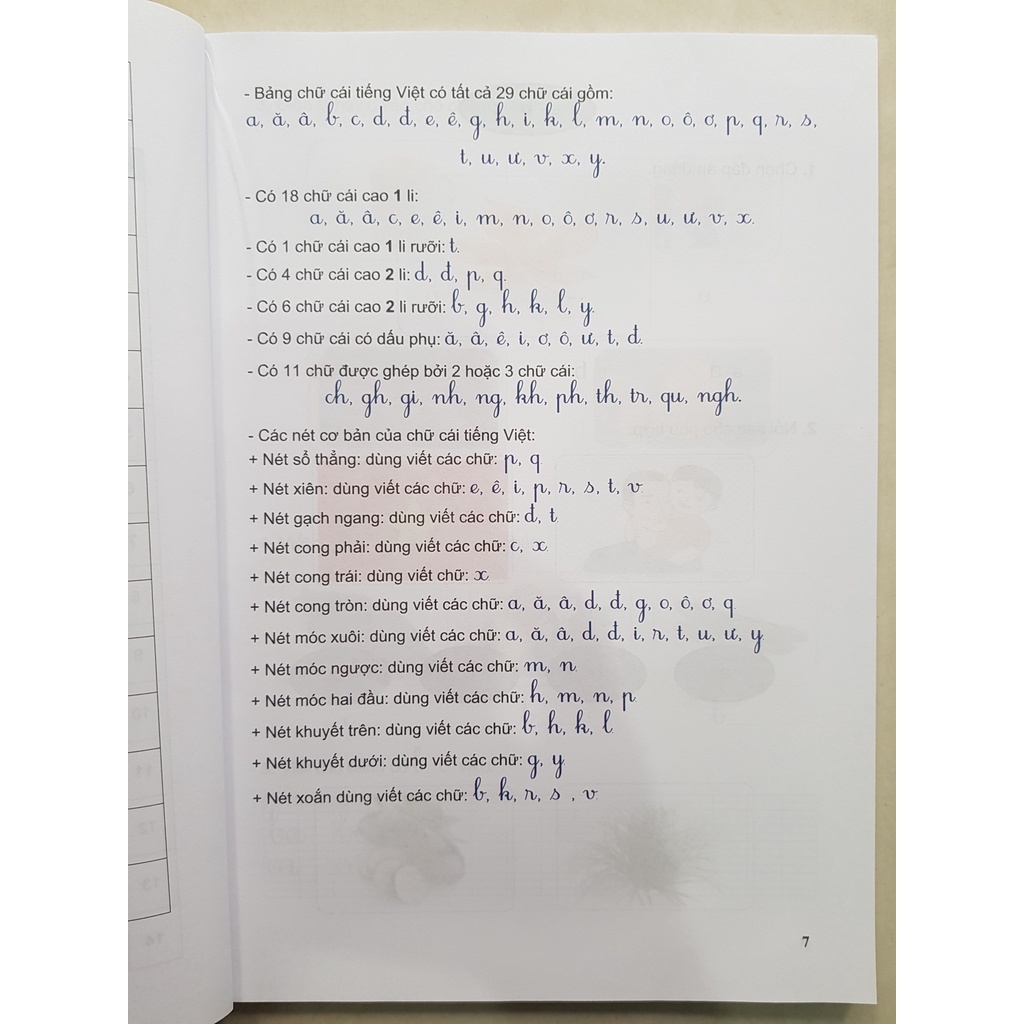 - Bảng chữ cái tiếng Việt có tất cả 29 chữ cái gồm:
a, ă, â, b, c, d, đ, e, ê, g, h, i, k, l, m, n, o, ô, ơ, p, q, r, s,
t, u, ư, v, x, y.
- Có 18 chữ cái cao 1 li:
a, ă, â, c, e, ê, i, m, n, o, ô, ơ, r, s, u, ư, v, x.
- Có 1 chữ cái cao 1 li rưỡi: t.
- Có 4 chữ cái cao 2 li: d, đ, p, q.
- Có 6 chữ cái cao 2 li rưỡi: b, g, h, k, l, y.
- Có 9 chữ cái có dấu phụ: ă, â, ê, i, ơ, ô, ư, t, đ.
- Có 11 chữ được ghép bởi 2 hoặc 3 chữ cái:
ch, gh, gi, nh, ng, kh, ph, th, tr, qu, ngh.
- Các nét cơ bản của chữ cái tiếng Việt:
+ Nét sổ thẳng: dùng viết các chữ: p, q.
+ Nét xiên: dùng viết các chữ: e, ê, i, p, r, s, t, v.
+ Nét gạch ngang: dùng viết các chữ: đ, t.
+ Nét cong phải: dùng viết các chữ: c, x.
+ Nét cong trái: dùng viết chữ: x.
+ Nét cong tròn: dùng viết các chữ: a, ă, â, d, đ, g, o, ô, ơ, q.
+ Nét móc xuôi: dùng viết các chữ: a, ă, â, d, đ, i, r, t, u, ư, y.
+ Nét móc ngược: dùng viết các chữ: m, n.
+ Nét móc hai đầu: dùng viết các chữ: h, m, n, p.
+ Nét khuyết trên: dùng viết các chữ: b, h, k, l.
+ Nét khuyết dưới: dùng viết các chữ: g, y.
+ Nét xoắn dùng viết các chữ: b, k, r, s , v.
7